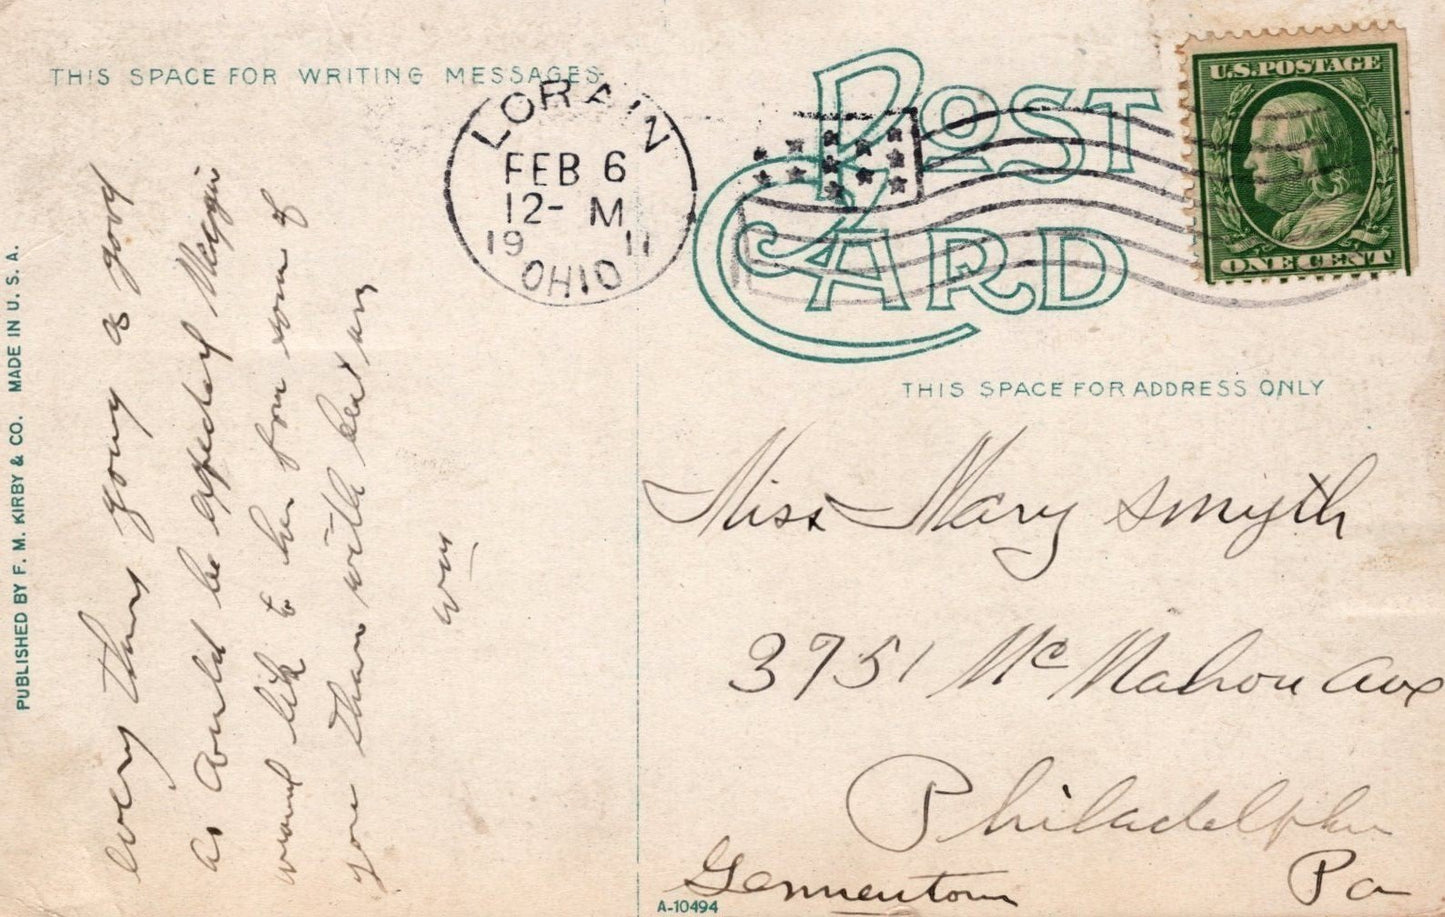 THIS SPACE FOR WRITING MESSAGES
POST CARD
LORAIN
FEB 6
12-M
1911
OHIO
U.S. POSTAGE
ONE CENT
THIS SPACE FOR ADDRESS ONLY
every thing going as good
as could be expected
would like to hear from some of
you Then will
Wm
Miss Mary Smyth
3751 Mc Mahon Ave
Philadelphia
Pa
A-10494
PUBLISHED BY F. M. KIRBY & CO. MADE IN U. S. A.